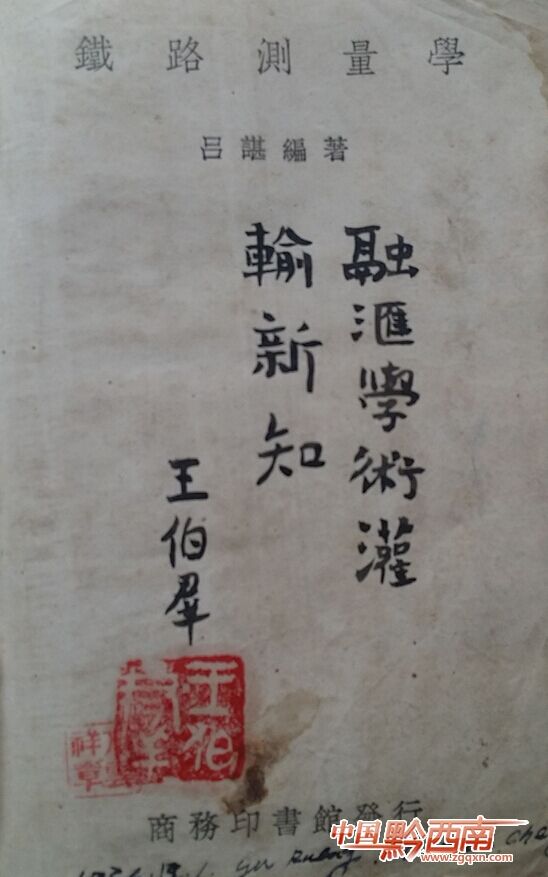 鐵路測量學
吕諶編著
融滙學術灌
輸新知
王伯羣
王伯
羣
祥
章
商務印書館發行
中国黔西南
www.zgqxn.com